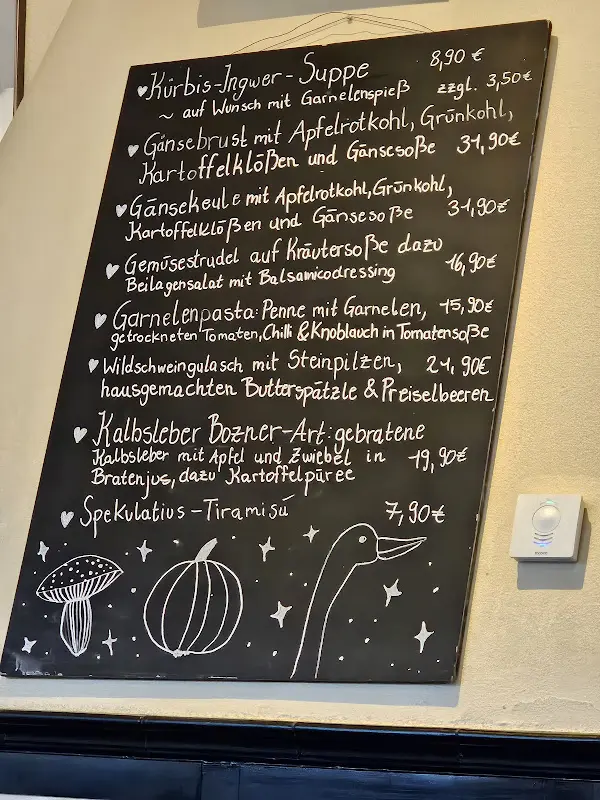 Kürbis-Ingwer-Suppe 8,90 €
~ auf Wunsch mit Garnelenspieß zzgl. 3,50€
Gänsebrust mit Apfelrotkohl, Grünkohl,
Kartoffelklößen und Gänsesoße 31,90€
Gänsekeule mit Apfelrotkohl, Grünkohl,
Kartoffelklößen und Gänsesoße 31,90€
Gemüsestrudel auf Kräutersoße dazu
Beilagensalat mit Balsamicodressing 16,90€
Garnelenpasta: Penne mit Garnelen, 15,90€
getrockneten Tomaten, Chilli & Knoblauch in Tomatensoße
Wildschweingulasch mit Steinpilzen, 21,90€
hausgemachten Butterspätzle & Preiselbeeren
Kalbsleber Bozner-Art: gebratene
Kalbsleber mit Apfel und Zwiebel in 19,90€
Bratenjus, dazu Kartoffelpüree
Spekulatius-Tiramisú 7,90€